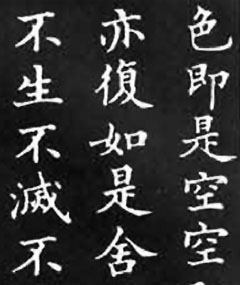 色即是空空
亦復如是舍
不生不滅不